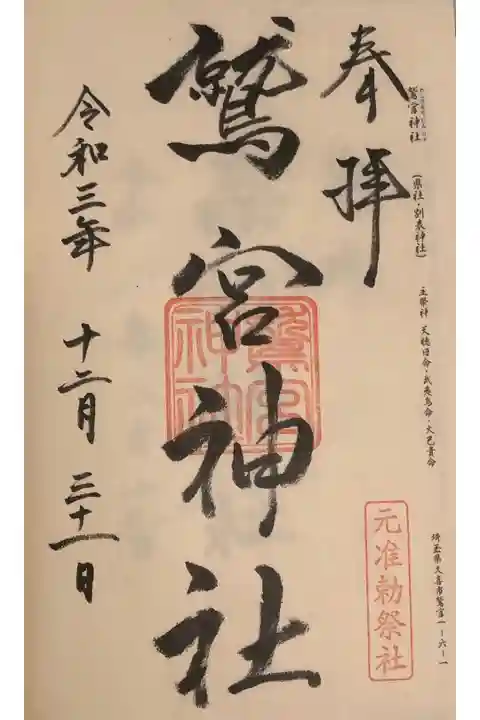 鷲宮神社
（県社・別表神社）
主祭神 天穂日命・武夷鳥命・大己貴命
埼玉県久喜市鷲宮一ー六ー一
奉拝
元准勅祭社
鷲宮神社
鷲宮神社
令和三年 十二月 三十一日